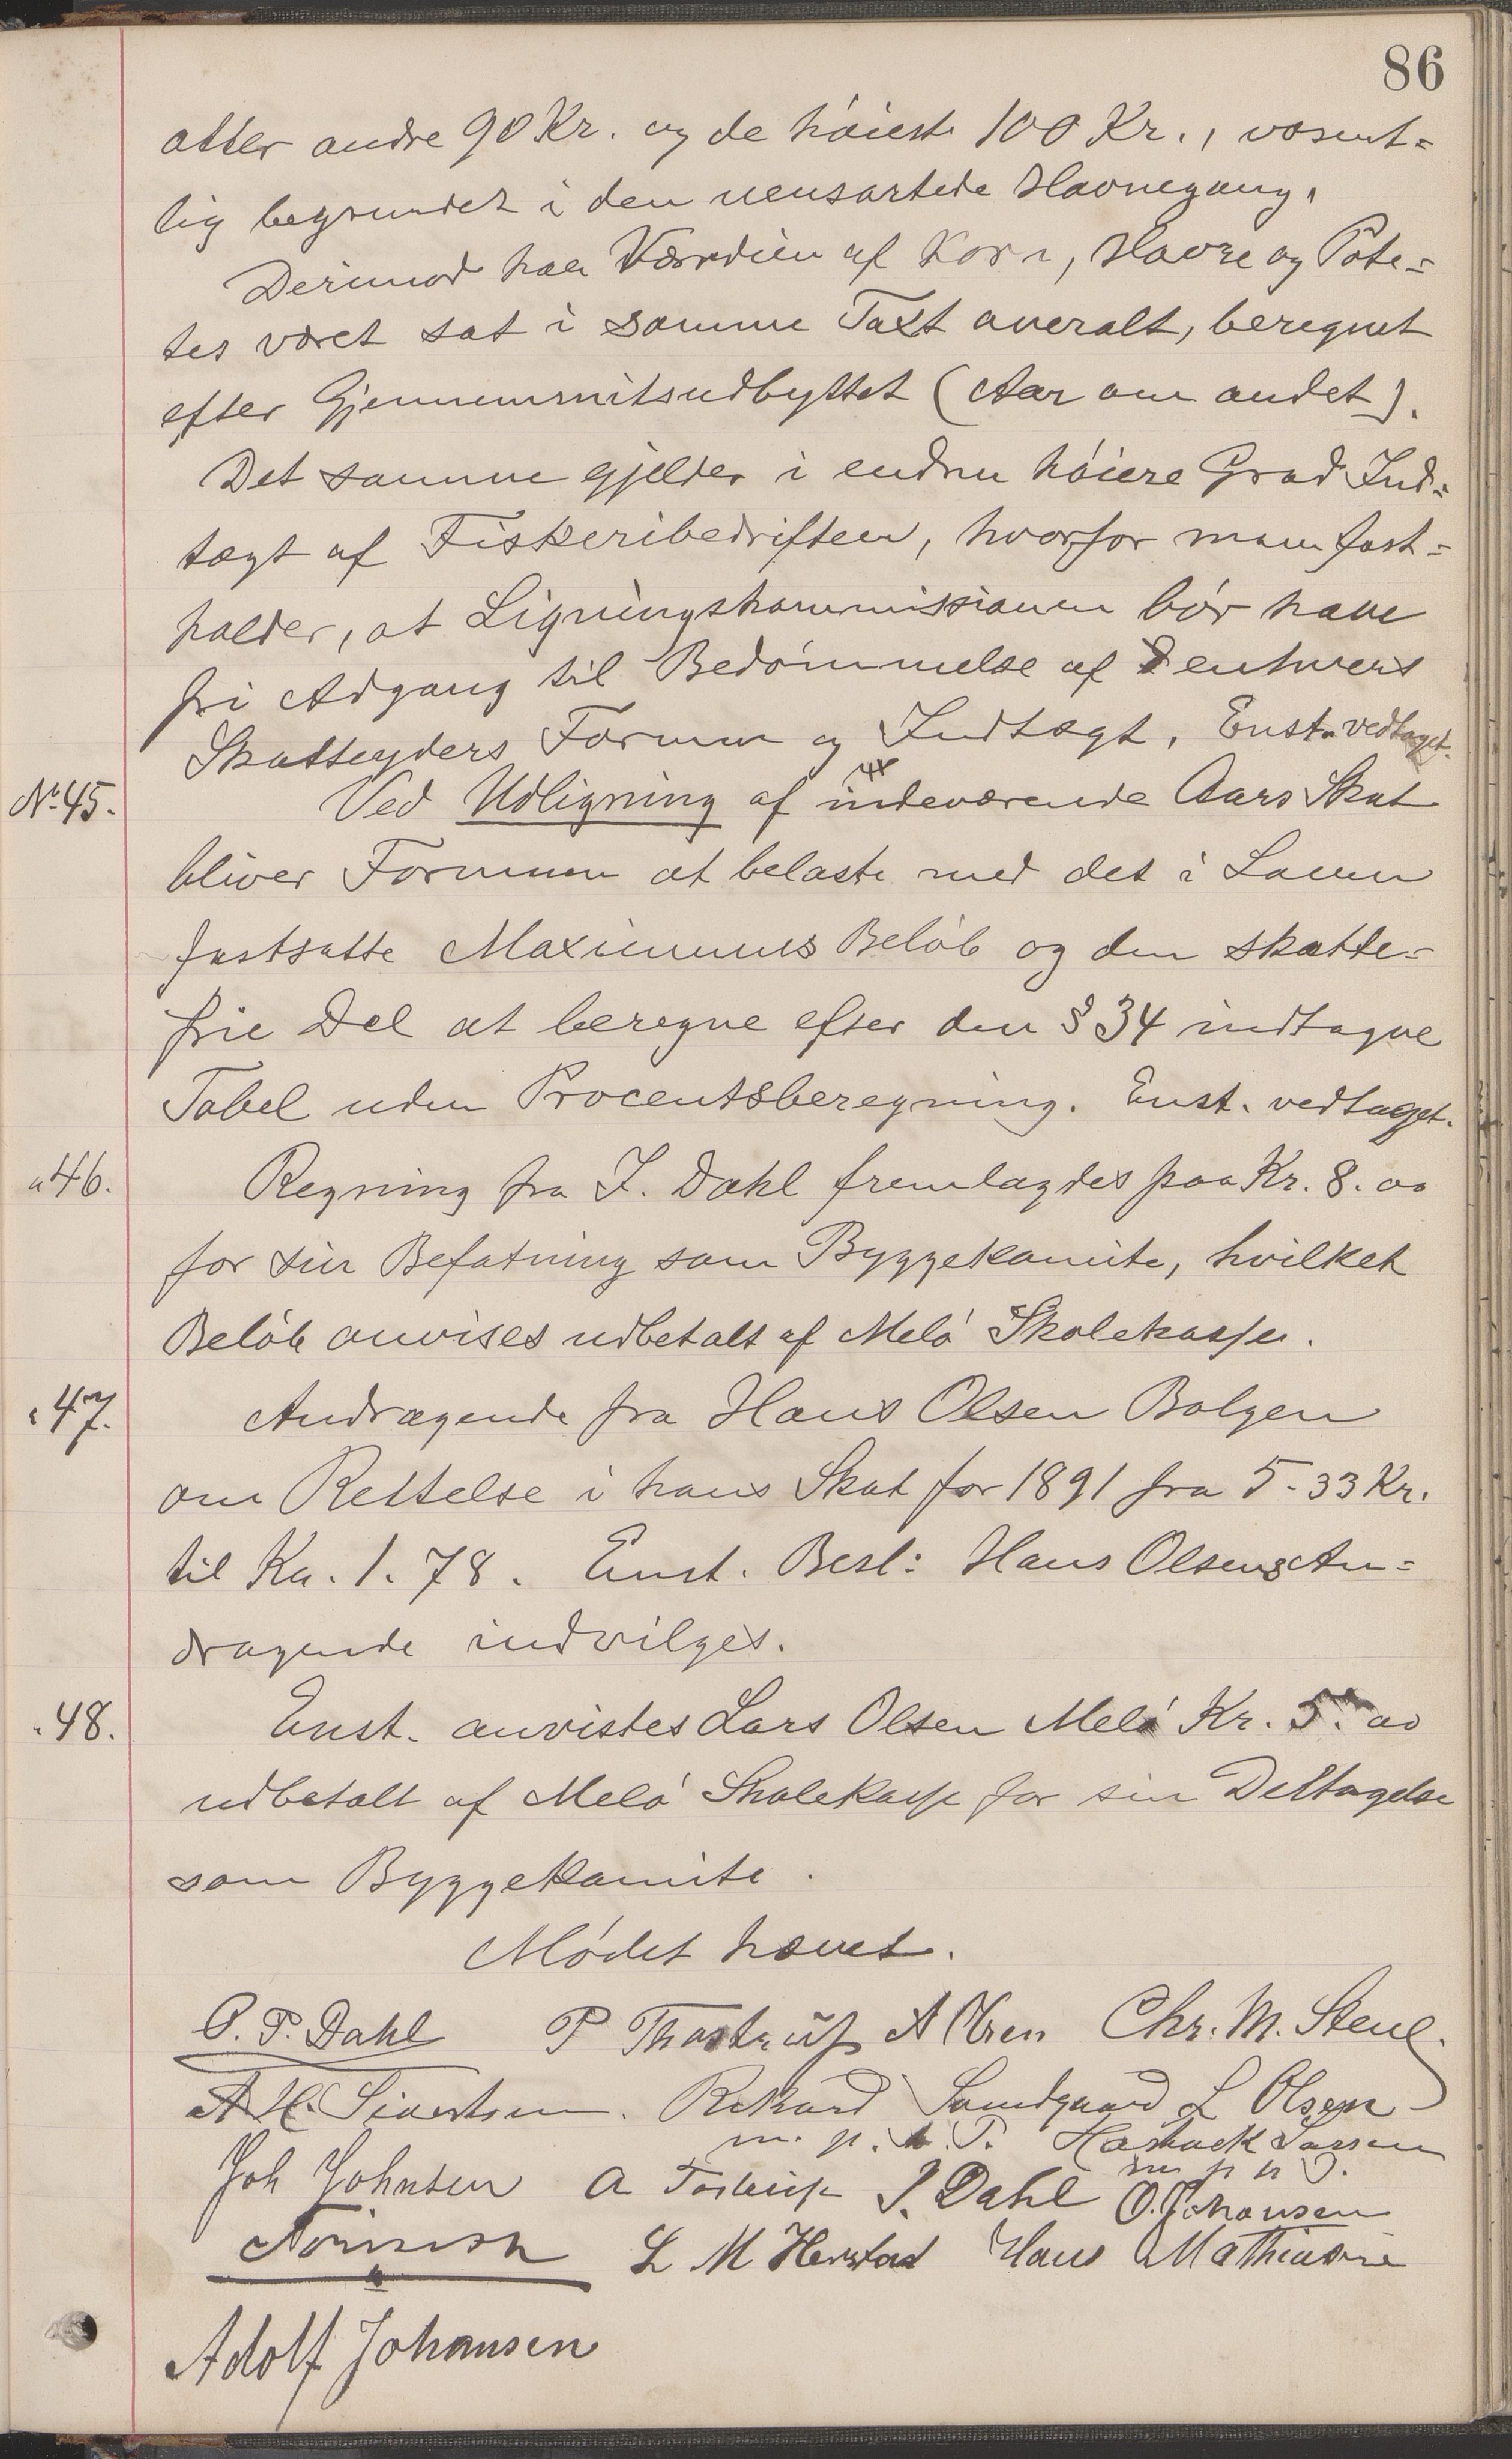 86
atter andre 90 Kr. og de höieste 100 Kr., væsent=
lig begrundet i den uensartede Havnegang.
Derimod har Værdien af Korn, Havre og Pote=
tes været sat i samme Taxt overalt, beregnet
efter Gjennemsnitsudbyttet (Aar om andet).
Det samme gjelder i endnu höiere Grad Ind=
tægt af Fiskeribedriften, hvorfor man fast=
holder, at Ligningskommissionen bör have
fri Adgang til Bedömmelse af enhvers
Skatteyders Formue og Indtægt. Enst. vedtaget.
No 45. Ved Udligning af indeværende Aars Skat
bliver Formuen at belaste med det i Loven
fastsatte Maximums Belöb og den skatte=
frie Del at beregne efter den § 34 indtagne
Tabel uden Procentsberegning. Enst. vedtaget.
" 46. Regning fra J. Dahl fremlagdes paa Kr. 8.00
for sin Befatning som Byggekomite, hvilket
Belöb anvises udbetalt af Melö Skolekasse.
" 47. Andragende fra Hans Olsen Bolgen
om Rettelse i hans Skat for 1891 fra 5-33 Kr.
til Kr. 1.78. Enst. Besl: Hans Olsens An=
dragende indvilges.
" 48. Enst. anvistes Lars Olsen Melö Kr. 5.00
udbetalt af Melö Skolekasse for sin Deltagelse
som Byggekomite.
Mödet hævet.
O. P. Dahl P Thostrup A Olsen Chr. M. Stene
A H. Sivertsen. Rikard Sandgaard L Olsen
m. p. P. Hartvick Larsen
Joh Johnsen A Tostrup J. Dahl m p P.
O. Johansen
L M Herstad Hans Mathiasen
Adolf Johansen